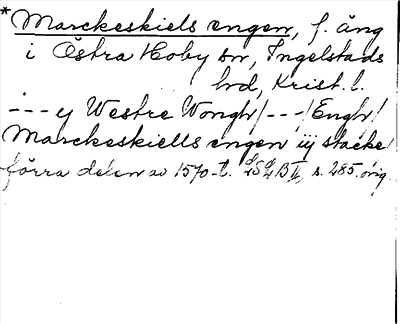 * Marckeskiels engen, f. äng
i Östra Hoby sn, Ingelstads
hd, Krist. l.
--- y Westre Wongh/---/Engh/
Marckeskiells engen iij stacke
förra delen av 1570-t. LSLB II, s. 285. orig.